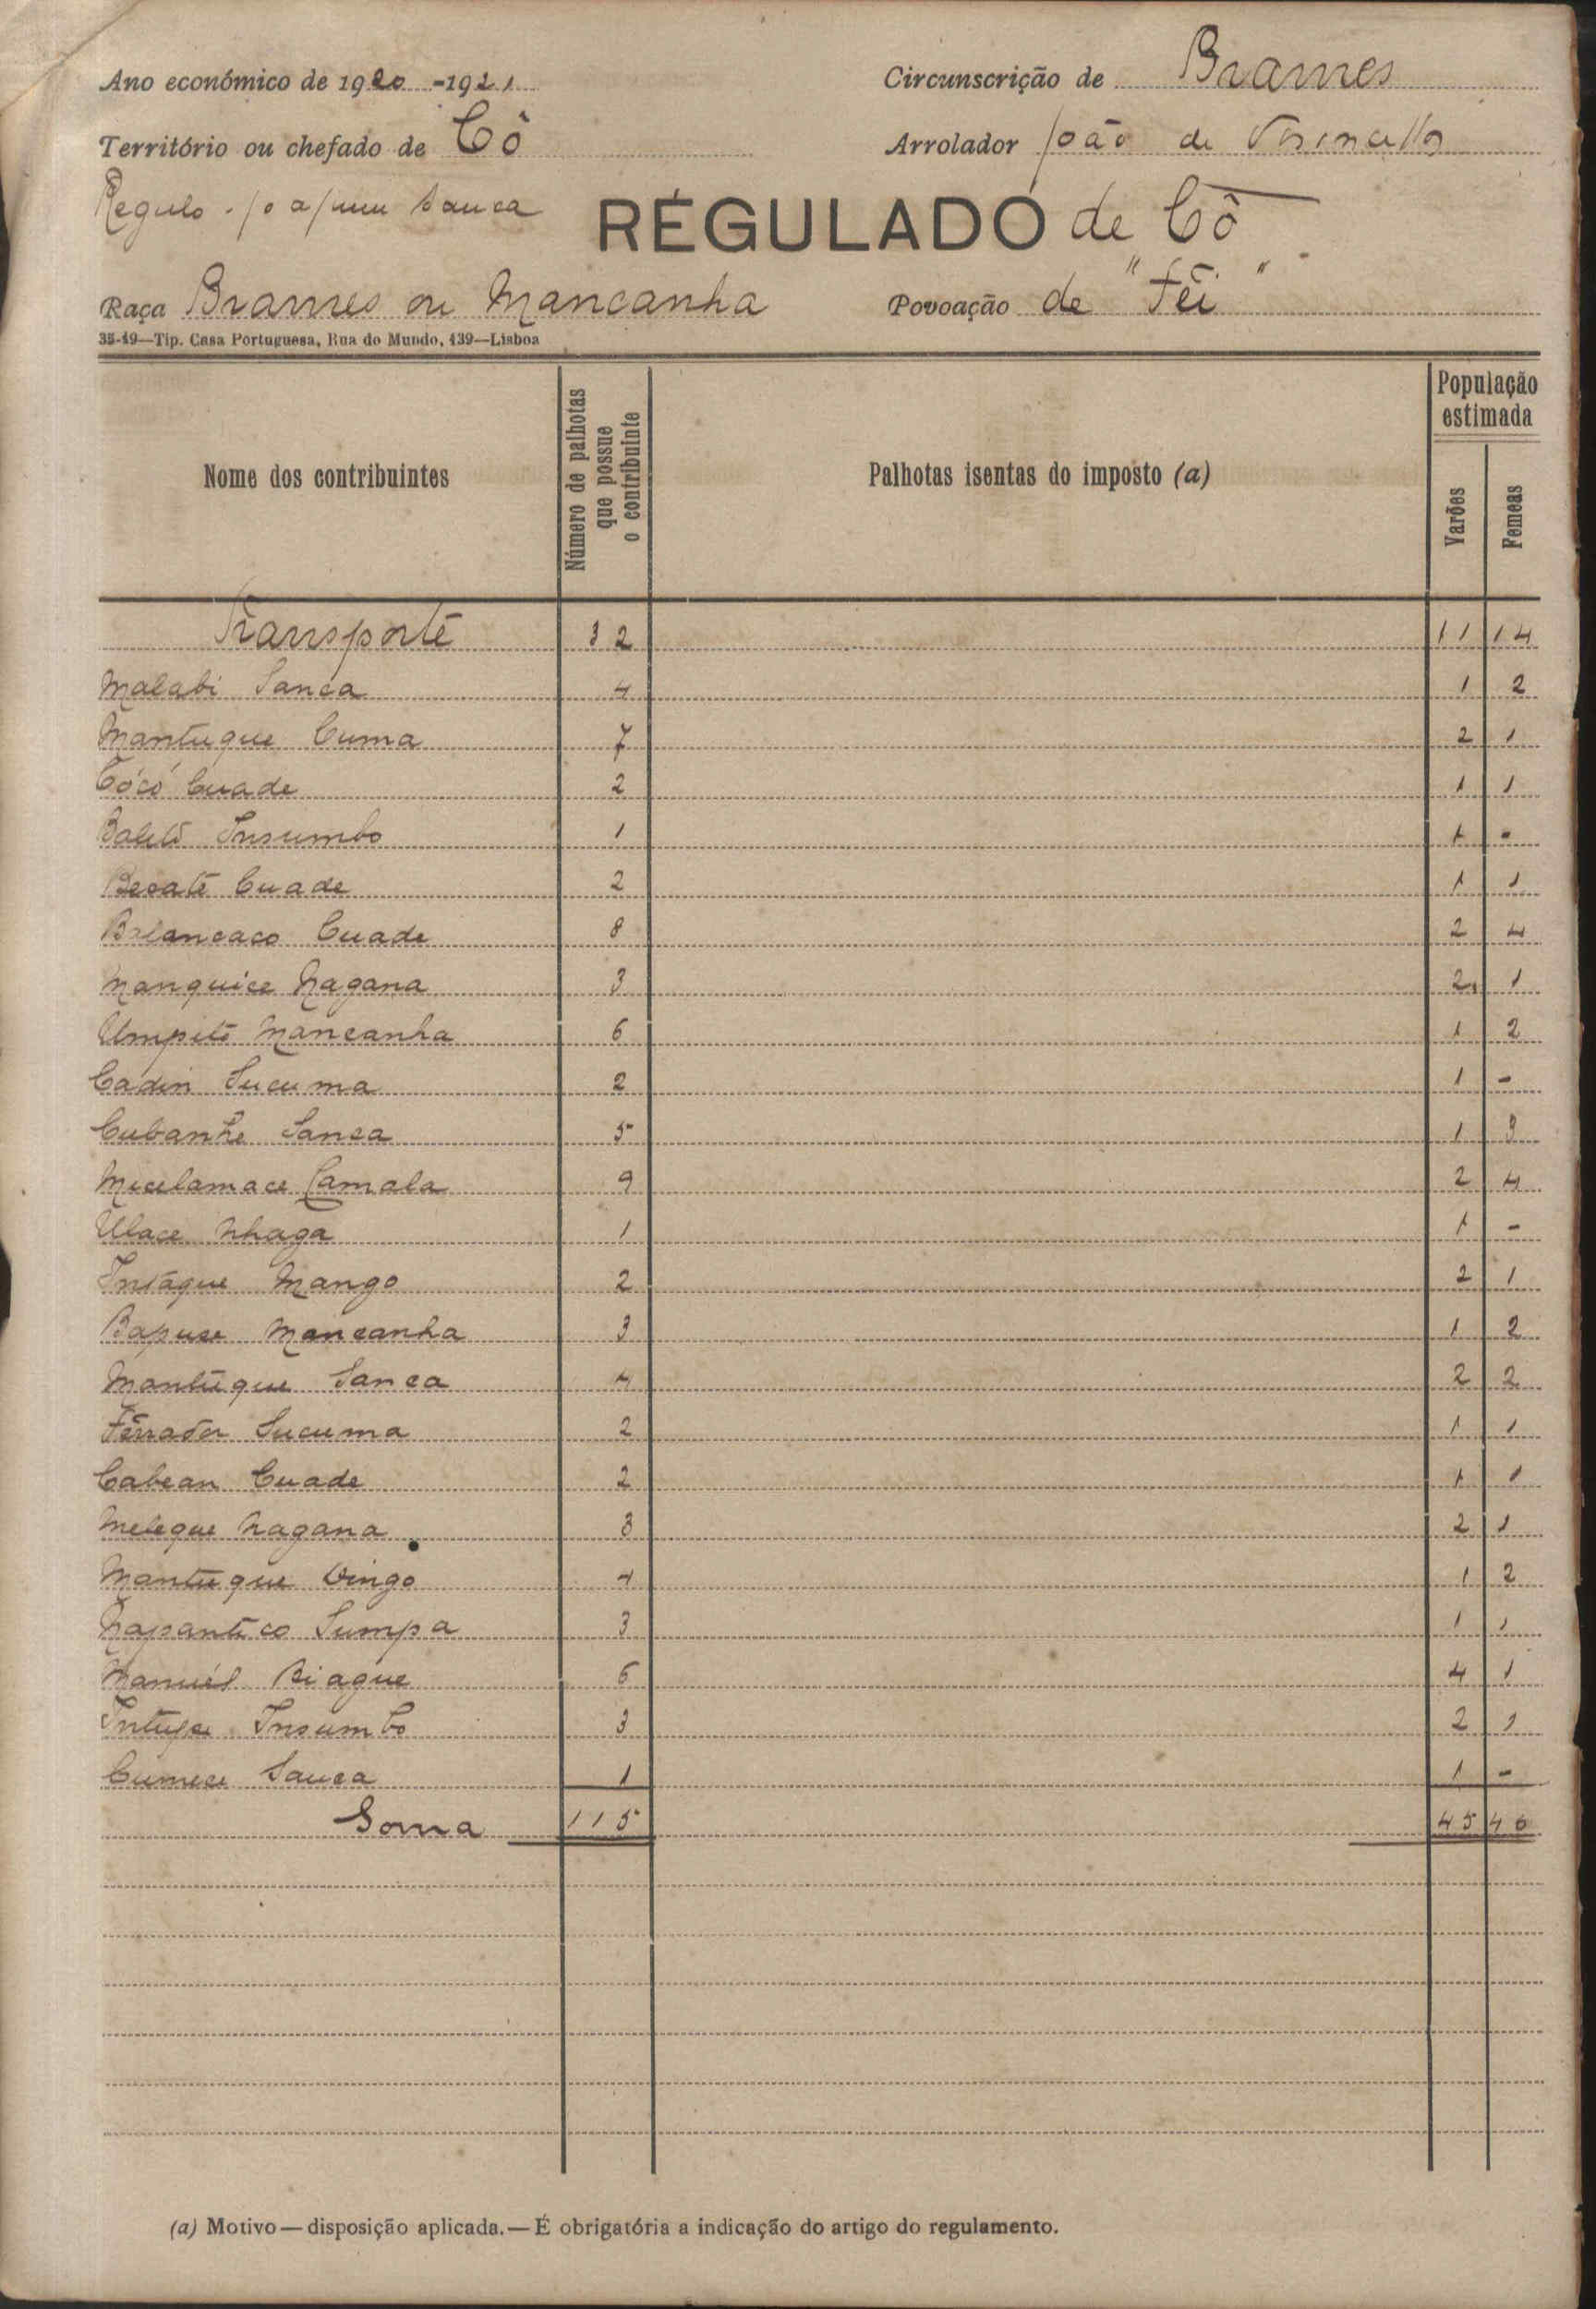 Ano económico de 1920 -1921
Circunscrição de Brames
Território ou chefado de Cô
Arrolador João de Vasconcellos
Regulo Joaquim Sanca
RÉGULADO de Cô
Raça Brames ou Mancanha
Povoação de "Téi"
35-19—Tip. Casa Portuguesa, Rua do Mundo, 139—Lisboa
Nome dos contribuintes
Número de palhotas que possue o contribuinte
Palhotas isentas do imposto (a)
População estimada
Varões
Femeas
Transporte 32 11 14
Malabi Sanca 4 1 2
Mantuque Cuma 7 2 1
Cócó Cuade 2 1 1
Insumbo 1 1 -
Becaté Cuade 2 1 1
Balancaco Cuade 8 2 4
Manquice Nagana 3 2 1
Umpitó Mancanha 6 1 2
Cadin Sucuma 2 1 -
Cubanhe Sanca 5 1 3
Micelamace Camala 9 2 4
Ulace Nhaga 1 1 -
Intaque Mango 2 2 1
Bapuse Mancanha 3 1 2
Mantuque Sanca 4 2 2
Ferrador Sucuma 2 1 1
Cabean Cuade 2 1 1
Meleque Nagana 3 2 1
Mantuque Vingo 4 1 2
Napantico Sumpa 3 1 1
Manuél Biague 6 4 1
Insumbo 3 2 1
Cumece Sanca 1 1 -
Soma 115 45 46
(a) Motivo—disposição aplicada.—É obrigatória a indicação do artigo do regulamento.